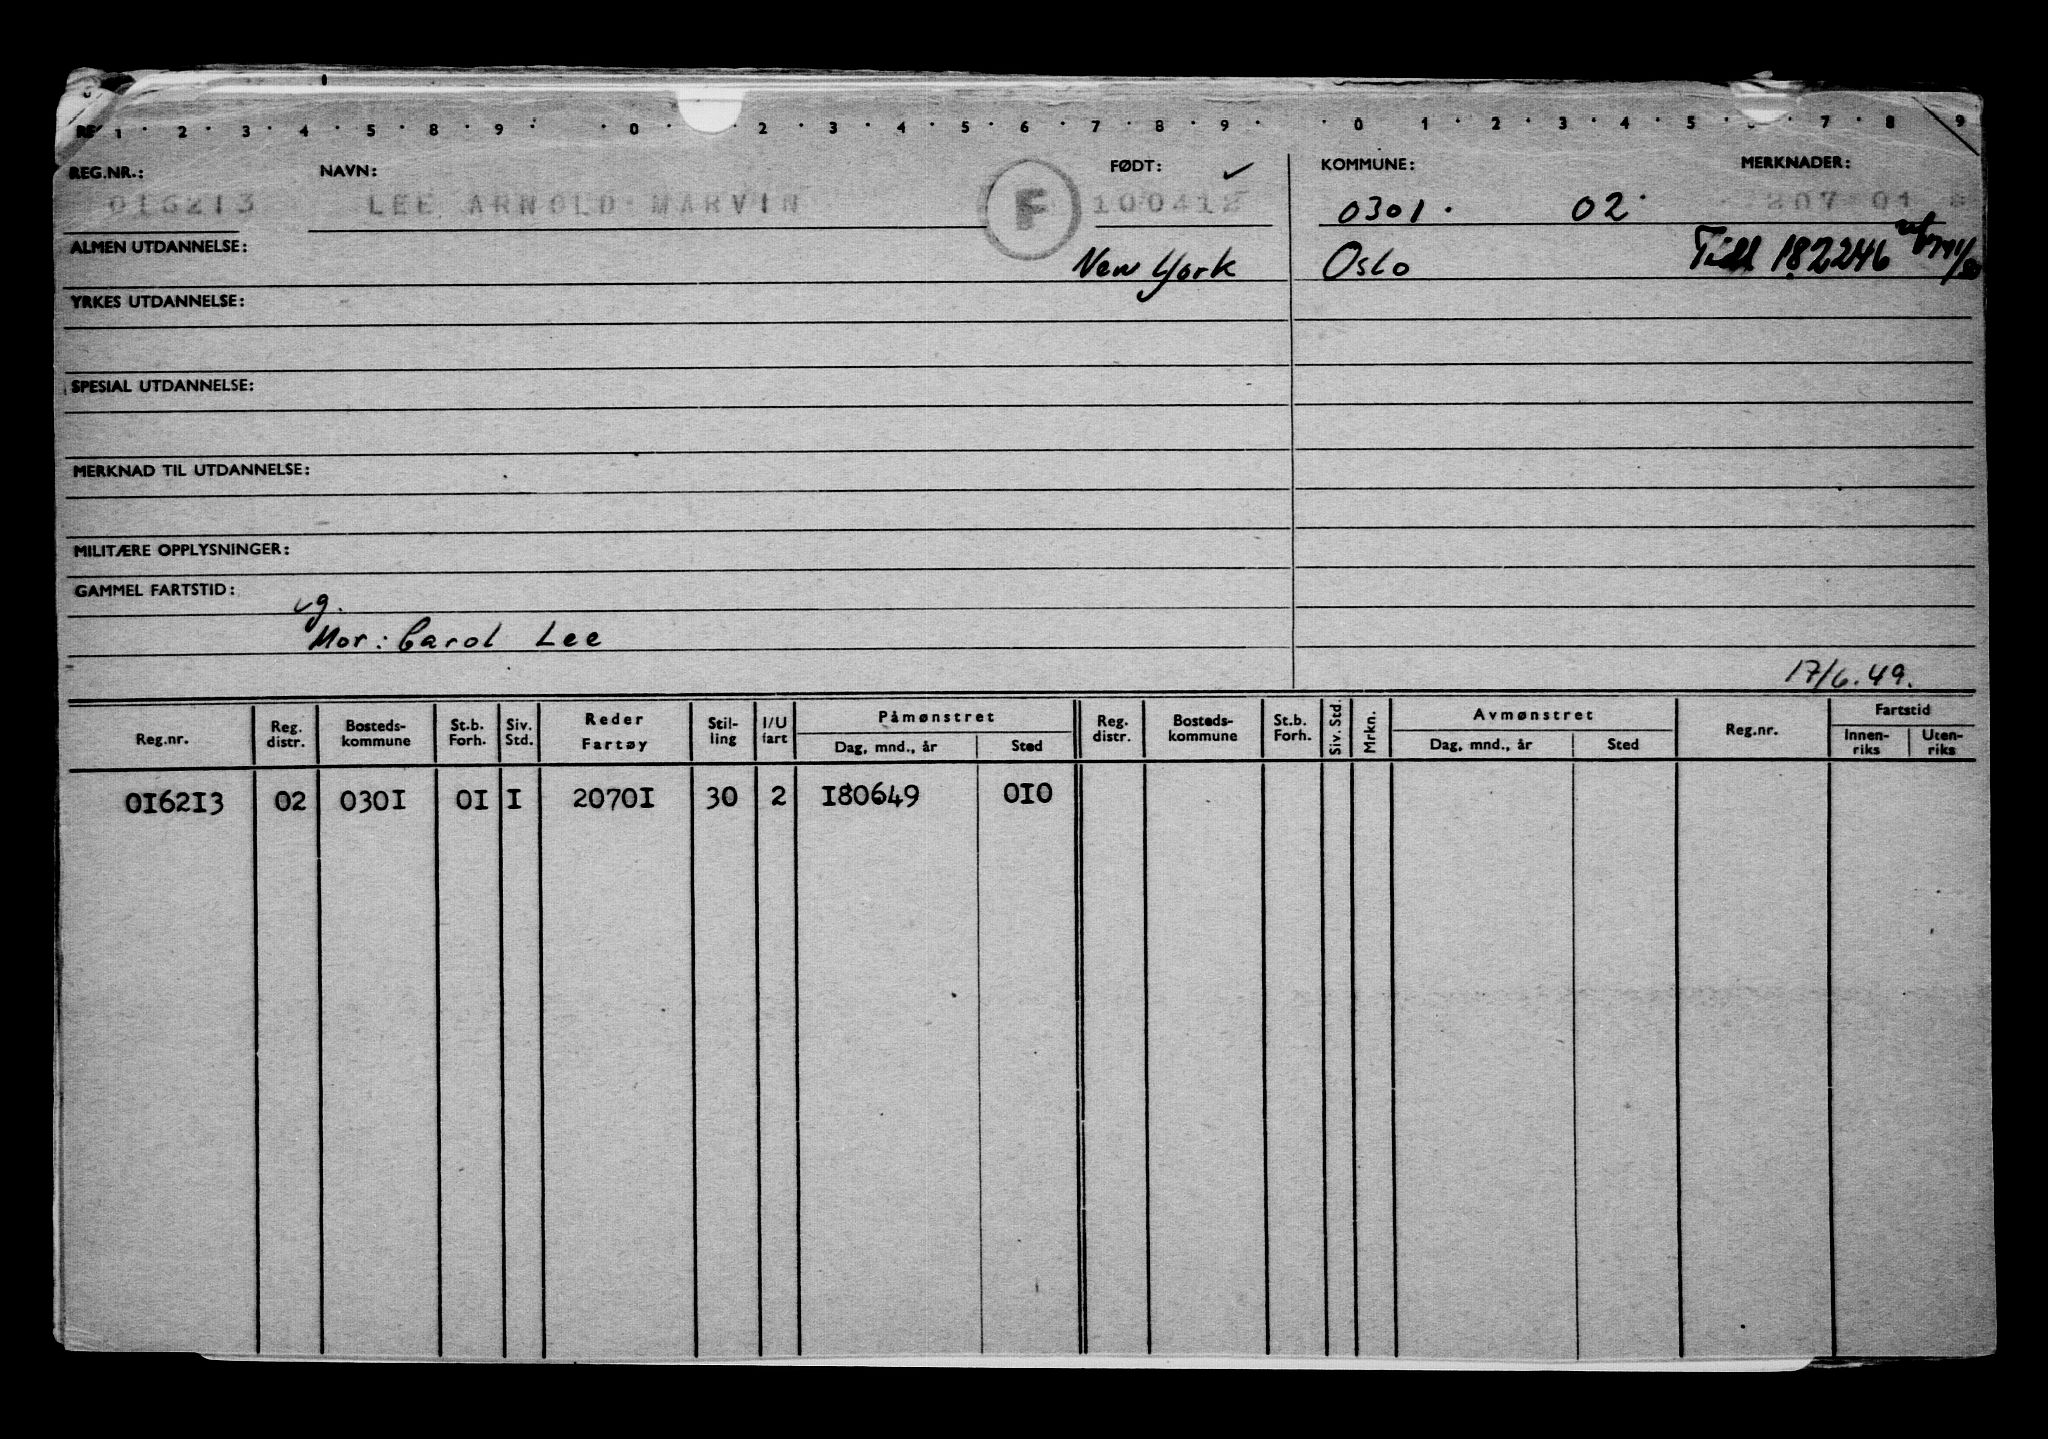 1 · 2 · 3 · 4 · 5 · 8 · 9 · · 0 · 2 · 3 · 4 · 5 · 6 · 7 · 8 · 9 · · 0 · 1 · 2 · 3 · 4 · 5 · · 7 · 8 · 9
REG.NR.: NAVN: FØDT: ✓ KOMMUNE: MERKNADER:
016213 LEE ARNOLD MARVIN F 100412 0301. 02 207 01
ALMEN UTDANNELSE: New York Oslo Tidl 182246
YRKES UTDANNELSE:
SPESIAL UTDANNELSE:
MERKNAD TIL UTDANNELSE:
MILITÆRE OPPLYSNINGER:
GAMMEL FARTSTID:
ug.
Mor: Carol Lee
17/6.49.
Reg.nr. Reg. distr. Bosteds-kommune St.b. Forh. Siv. Std. Reder Fartøy Stil-ling I/U fart Påmønstret Dag, mnd., år Sted Reg. distr. Bosteds-kommune St.b. Forh. Siv. Std. Mrkn. Avmønstret Dag, mnd., år Sted Reg.nr. Fartstid Innen-riks Uten-riks
016213 02 0301 01 1 20701 30 2 180649 010